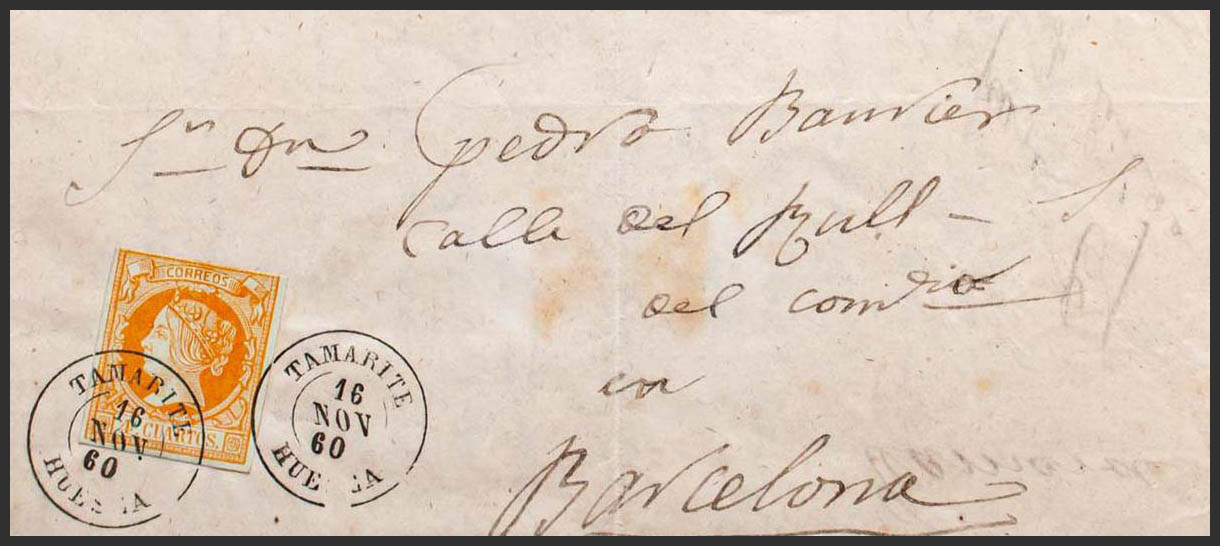 Sr. Dn. Pedro
Calle del Bull
del
en
Barcelona
CORREOS
CUARTOS.
TAMARITE
16
NOV
60
HUESCA
TAMARITE
16
NOV
60
HUESCA